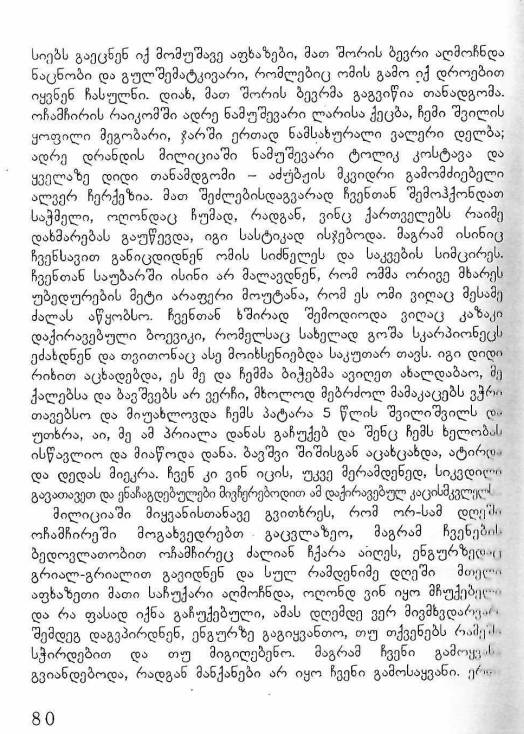 სიებს გაეცნენ იქ მომუშავე აფხაზები, მათ შორის ბევრი აღმოჩნდა
ნაცნობი და გულშემატკივარი, რომლებიც ომის გამო იქ დროებით
იყვნენ ჩასულნი. დიახ, მათ შორის ბევრმა გაგვიწია თანადგომა.
ოჩამჩირის რაიკომში ადრე ნამუშევარი ლარისა ქეცბა, ჩემი შვილის
ყოფილი მეგობარი, ჯარში ერთად ნამსახურალი ვალერი დელბა;
ადრე დრანდის მილიციაში ნამუშევარი ტოლიკ კოსტავა და
ყველაზე დიდი თანამდგომი – აძუბჟის მკვიდრი გამომძიებელი
ალვერ ჩერქეზია. მათ შეძლებისდაგვარად ჩვენთან შემოჰქონდათ
საჭმელი, ოღონდაც ჩუმად, რადგან, ვინც ქართველებს რაიმე
დახმარებას გაუწევდა, იგი სასტიკად ისჯებოდა. მაგრამ ისინიც
ჩვენსავით განიცდიდნენ ომის სიძნელეს და საკვების სიმცირეს.
ჩვენთან საუბარში ისინი არ მალავდნენ, რომ ომმა ორივე მხარეს
უბედურების მეტი არაფერი მოუტანა, რომ ეს ომი ვიღაც მესამე
ძალას აწყობსო. ჩვენთან ხშირად შემოდიოდა ვიღაც კაზაკი
დაქირავებული ბოევიკი, რომელსაც სახელად გოშა სკარპიონეცს
ეძახდნენ და თვითონაც ასე მოიხსენიებდა საკუთარ თავს. იგი დიდი
რიხით აცხადებდა, ეს მე და ჩემმა ბიჭებმა ავიღეთ ახალდაბაო, მე
ქალებსა და ბავშვებს არ ვერჩი, მხოლოდ მებრძოლ მამაკაცებს ვჭრი
თავებსო და მიუახლოვდა ჩემს პატარა 5 წლის შვილიშვილს და
უთხრა, აი, მე ამ პრიალა დანას გაჩუქებ და შენც ჩემს ხელობას
ისწავლიო და მიაწოდა დანა. ბავშვი შიშისგან აცახცახდა, ატირდა
და დედას მიეკრა. ჩვენ კი ვინ იცის, უკვე მერამდენედ, სიკვდილი
გავათავეთ და ენაჩაგდებულები მივჩერებოდით ამ დაქირავებულ კაცისმკვლელს.
მილიციაში მიყვანისთანავე გვითხრეს, რომ ორ-სამ დღეში
ოჩამჩირეში მოგახვედრებთ გაცვლაზეო, მაგრამ ჩვენების
ბედოვლათობით ოჩამჩირეც ძალიან ჩქარა აიღეს, ენგურზედაც
გრიალ-გრიალით გავიდნენ და სულ რამდენიმე დღეში მთელი
აფხაზეთი მათი საჩუქარი აღმოჩნდა, ოღონდ ვინ იყო მჩუქებელი
და რა ფასად იქნა გაჩუქებული, ამას დღემდე ვერ მივმხვდარვარ.
შემდეგ დაგვპირდნენ, ენგურზე გაგიყვანთო, თუ თქვენებს რამეში
სჭირდებით და თუ მიგიღებენო. მაგრამ ჩვენი გამოყვანა
გვიანდებოდა, რადგან მანქანები არ იყო ჩვენი გამოსაყვანი.
80